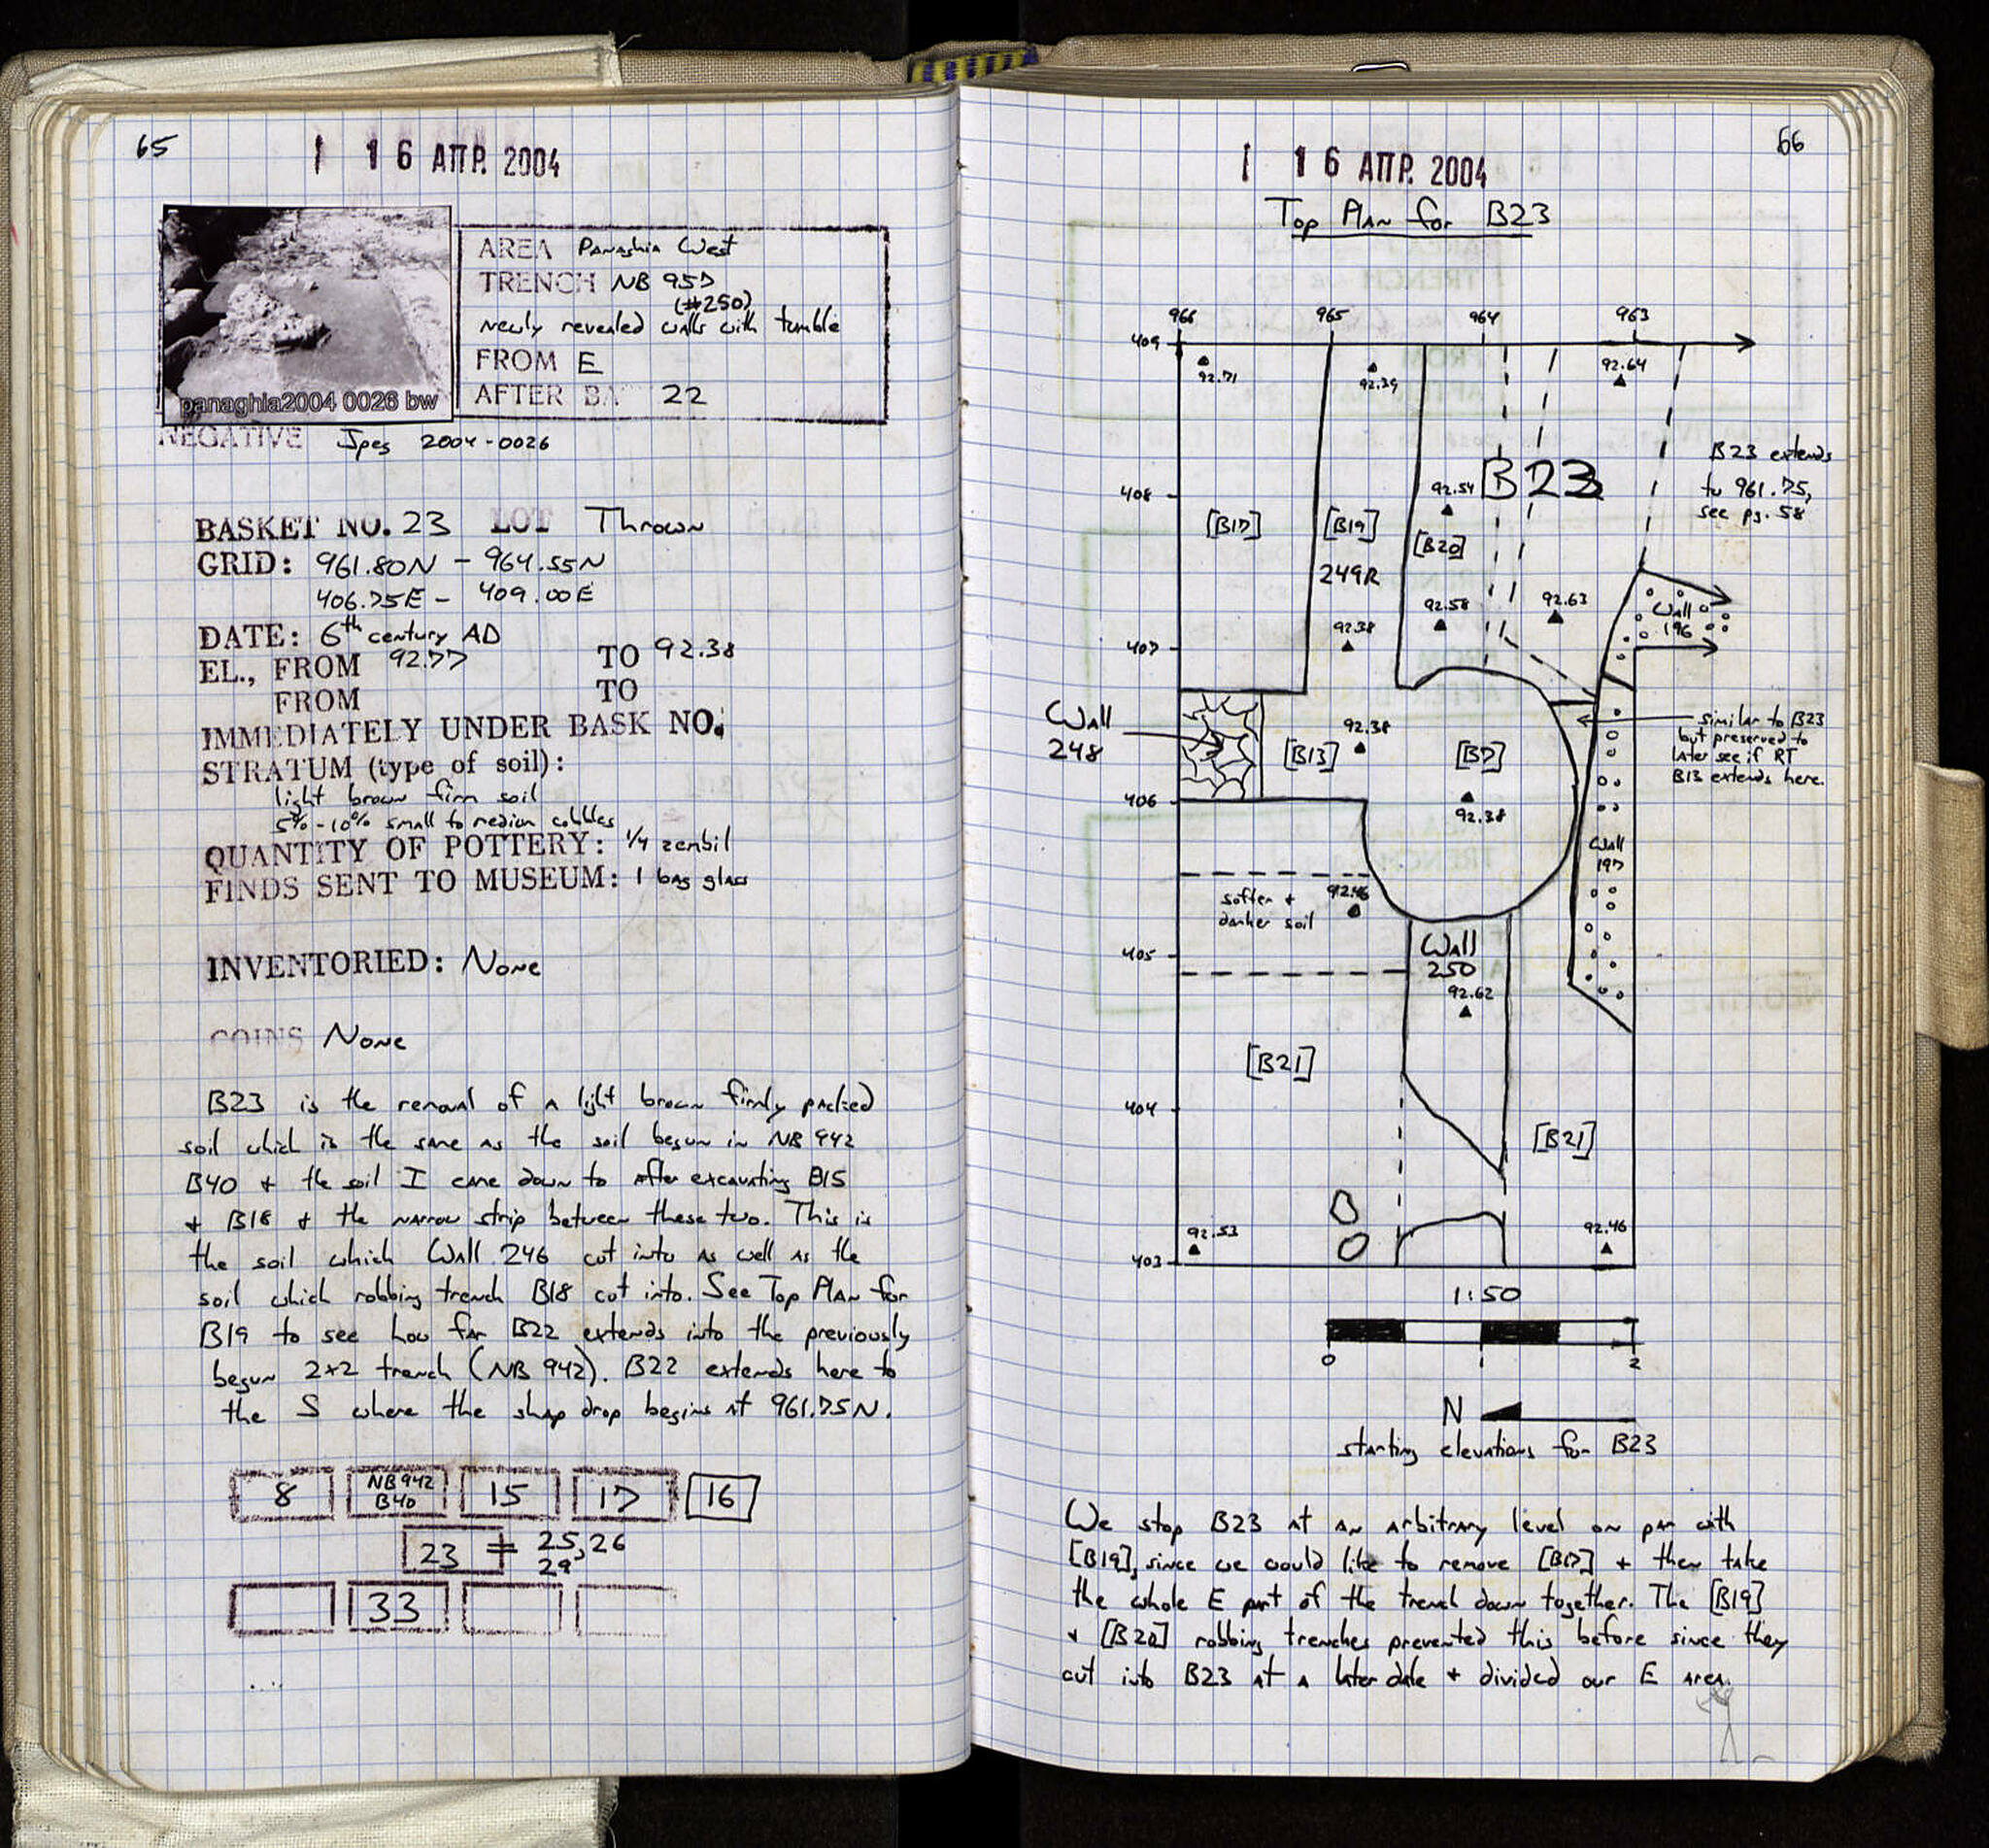 65
1 16 ΑΠΡ. 2004
AREA Panaghia West
TRENCH NB 957
(#250)
newly revealed walls with tumble
FROM E
AFTER BA 22
panaghia2004 0026 bw
NEGATIVE Jpeg 2004-0026
BASKET NO. 23 LOT Thrown
GRID: 961.80N - 964.55N
406.75E - 409.00E
DATE: 6th century AD
EL., FROM 92.77 TO 92.38
FROM TO
IMMEDIATELY UNDER BASK NO.
STRATUM (type of soil):
light brown firm soil
5% - 10% small to medium cobbles
QUANTITY OF POTTERY: 1/4 zembil
FINDS SENT TO MUSEUM: 1 bag glass
INVENTORIED: None
COINS None
B23 is the removal of a light brown firmly packed
soil which is the same as the soil begun in NB 942
B40 + the soil I came down to after excavating B15
+ B18 + the narrow strip between these two. This is
the soil which Wall 246 cut into as well as the
soil which robbing trench B18 cut into. See Top Plan for
B19 to see how far B22 extends into the previously
begun 2x2 trench (NB 942). B22 extends here to
the S where the sharp drop begins at 961.75N.
8 NB 942 B40 15 17 16
23 = 25, 26
29
33
66
1 16 ΑΠΡ. 2004
Top Plan for B23
966 965 964 963
409
92.71 92.39 92.64
B23 extends
to 961.75,
see pg. 58
408
92.54 B23
[B17] [B19] [B20]
249R
92.58 92.63
Wall
196
92.38
407
Wall
248
[B13] 92.38 [B7]
similar to B23
but preserved to
later see if RT
B13 extends here.
406
92.38
Wall
197
softer +
darker soil
92.46
405
Wall
250
92.62
[B21]
404
[B21]
92.53 92.46
403
1:50
0 1 2
N
starting elevations for B23
We stop B23 at an arbitrary level on par with
[B19], since we would like to remove [B17] + then take
the whole E part of the trench down together. The [B19]
+ [B20] robbing trenches prevented this before since they
cut into B23 at a later date + divided our E area.